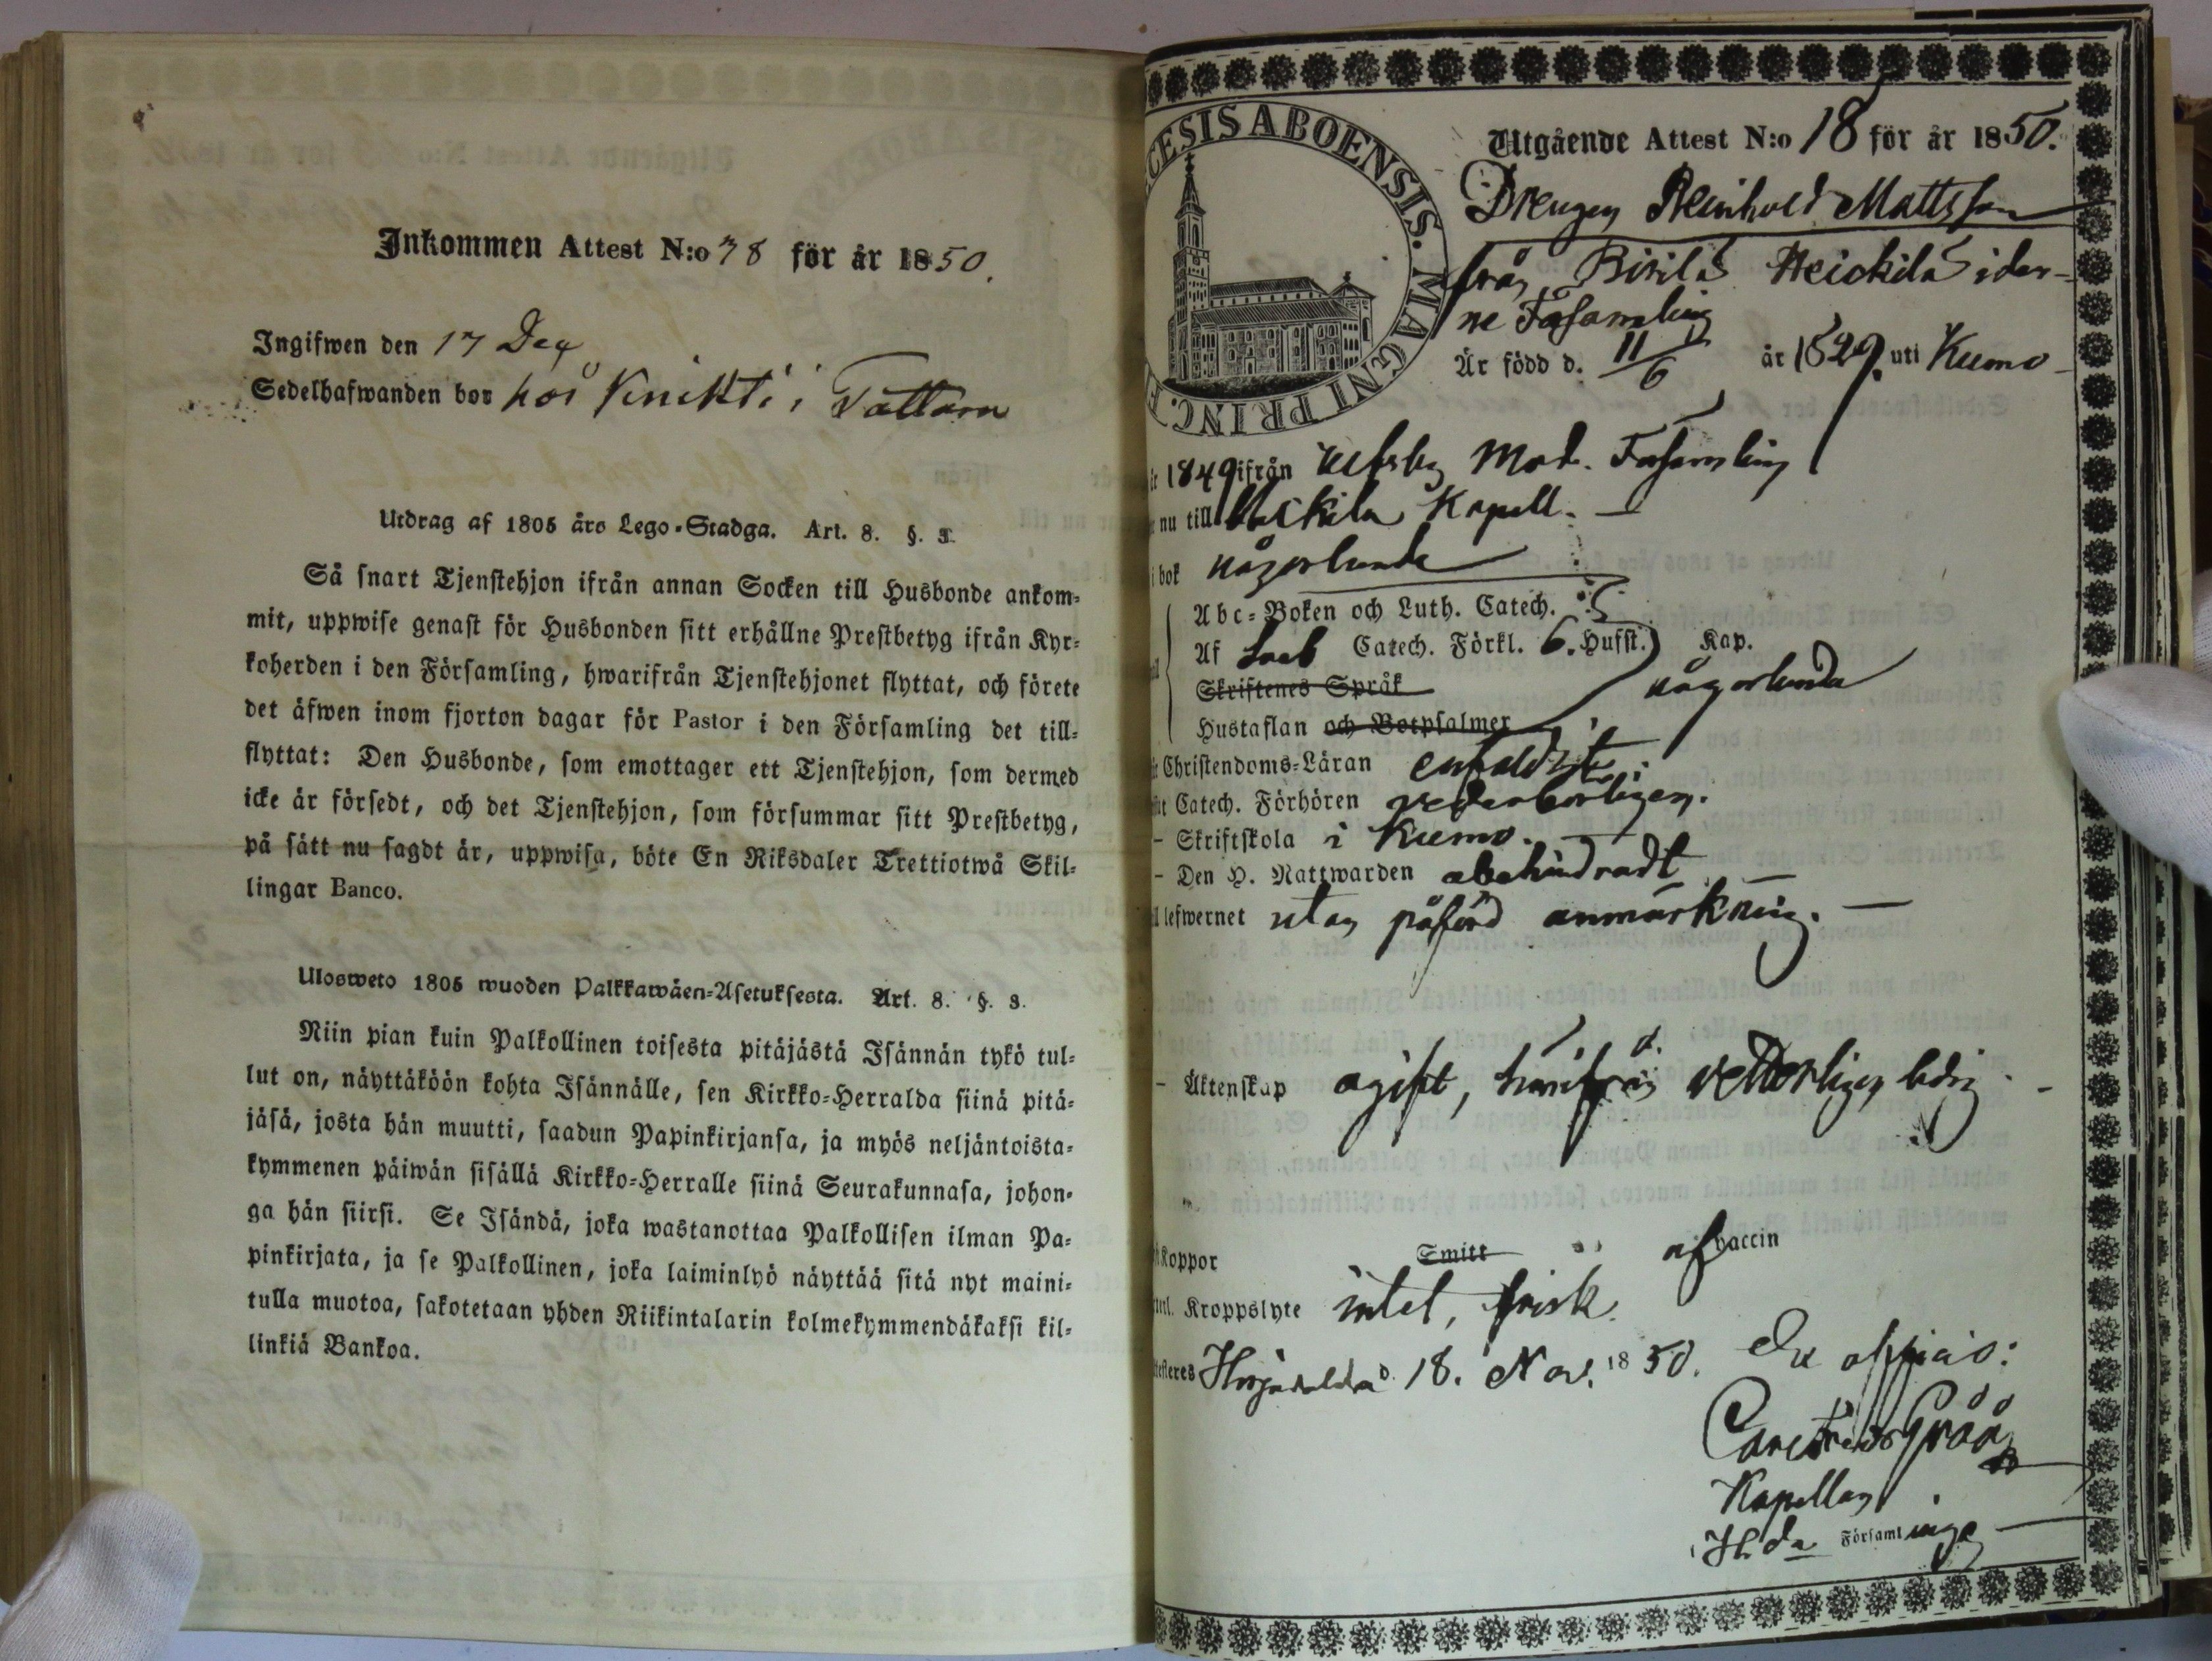 Inkommen Attest N:o 78 för år 1850.
Ingifwen den 17 Dec
Sedelhafwanden bor hos Knihti i Tattara
Utdrag af 1805 års Lego-Stadga. Art. 8. §. 3.
Så snart Tjenstehjon ifrån annan Socken till Husbonde ankom-
mit, uppwise genast för Husbonden sitt erhållne Prestbetyg ifrån Kyr-
koherden i den Församling, hwarifrån Tjenstehjonet flyttat, och förete
det äfwen inom fjorton dagar för Pastor i den Församling det till-
flyttat: Den Husbonde, som emottager ett Tjenstehjon, som dermed
icke är försedt, och det Tjenstehjon, som försummar sitt Prestbetyg,
på sätt nu sagdt är, uppwisa, böte En Riksdaler Trettiotwå Skil-
lingar Banco.
Ulosweto 1805 wuoden Palkkawäen-Asetuksesta. Art. 8. §. 3.
Niin pian kuin Palkollinen toisesta pitäjästä Isännän tykö tul-
lut on, näyttäköön kohta Isännälle, sen Kirkko-Herralda siinä pitä-
jäsä, josta hän muutti, saadun Papinkirjansa, ja myös neljäntoista-
kymmenen päiwän sisällä Kirkko-Herralle siinä Seurakunnasa, johon-
ga hän siirsi. Se Isändä, joka wastanottaa Palkollisen ilman Pa-
pinkirjata, ja se Palkollinen, joka laiminlyö näyttää sitä nyt maini-
tulla muotoa, sakotetaan yhden Riikintalarin kolmekymmendäkaksi kil-
linkiä Bankoa.
CESIS ABOENSIS. MAGNI PRINC. F
Utgående Attest N:o 18 för år 1850.
Drengen Reinhold Mattsson
från Heickilä i den-
ne Församling
Är född d. 11/6 år 1829. uti Kumo
år 1849 ifrån Ulfsby Mod. Församling
nu till Kapell.
i bok någorlunda
Abc-Boken och Luth. Catech.
Af Catech. Förkl. 6. Hufst. Kap.
Skriftenes Språk någorlunda
Hustaflan och Botpsalmer
Christendoms-Läran enfaldigt
Catech. Förhören vederbörligen.
- Skriftskola i Kumo.
- Den H. Nattwarden obehindradt
lefwernet utan påförd anmärkning.
- Äktenskap ogift, härifrån veterligen ledig
Koppor Smitt af vaccin
Kroppslyte intet, frisk.
d. 18. Nov. 1850. Ex officio:
Grää
Kapellan
i H:da Församlinge